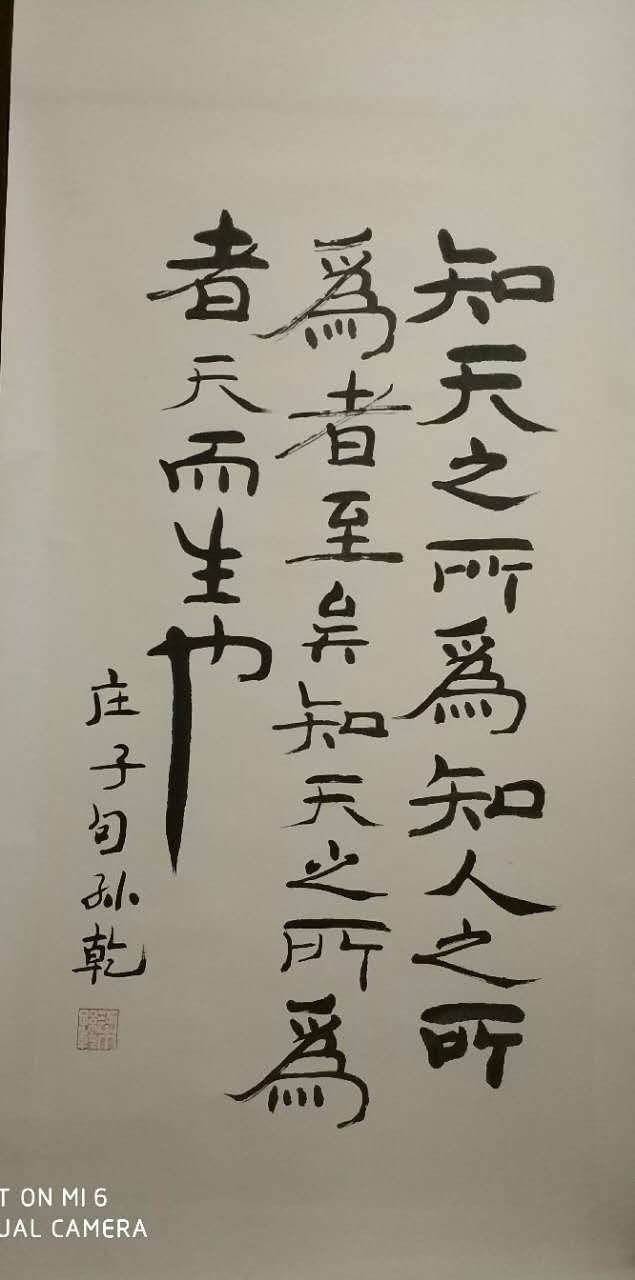 知天之所爲知人之所
爲者至矣知天之所爲
者天而生也
庄子句孙乾
T ON MI 6
UAL CAMERA